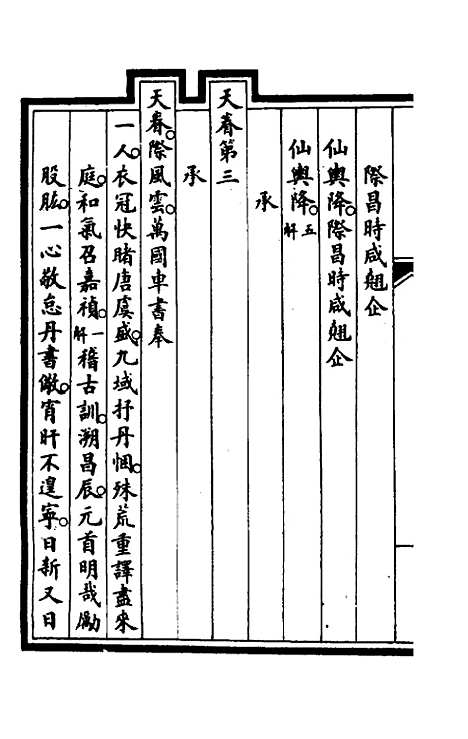 際昌時咸翹企
仙輿降。際昌時咸翹企
仙輿降。五解
承
天眷第三
承
天眷。際風雲。萬國車書奉
一人。衣冠快睹唐虞盛。九域抒丹悃。殊荒重譯盡來
庭。和氣召嘉禎。一解稽古訓。溯昌辰。元首明哉勵
股肱。一心敬怠丹書儆。宵旰不遑寧。日新又日